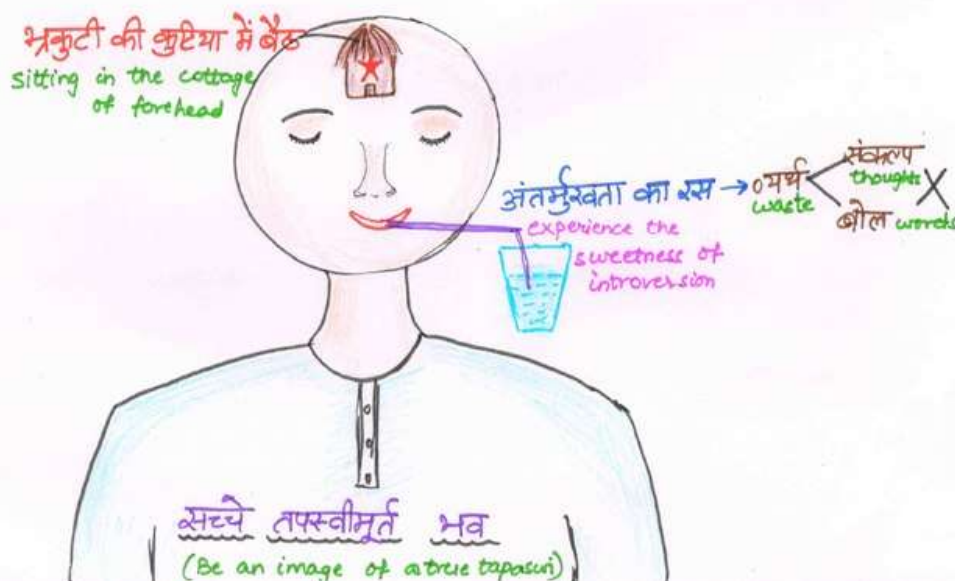 भ्रकुटी की कुटिया में बैठ
sitting in the cottage
of forehead
अंतर्मुखता का रस → व्यर्थ
waste
संकल्प
thoughts
बोल words
experience the
sweetness of
introversion
सच्चे तपस्वीमूर्त भव
(Be an image of a true tapaswi)